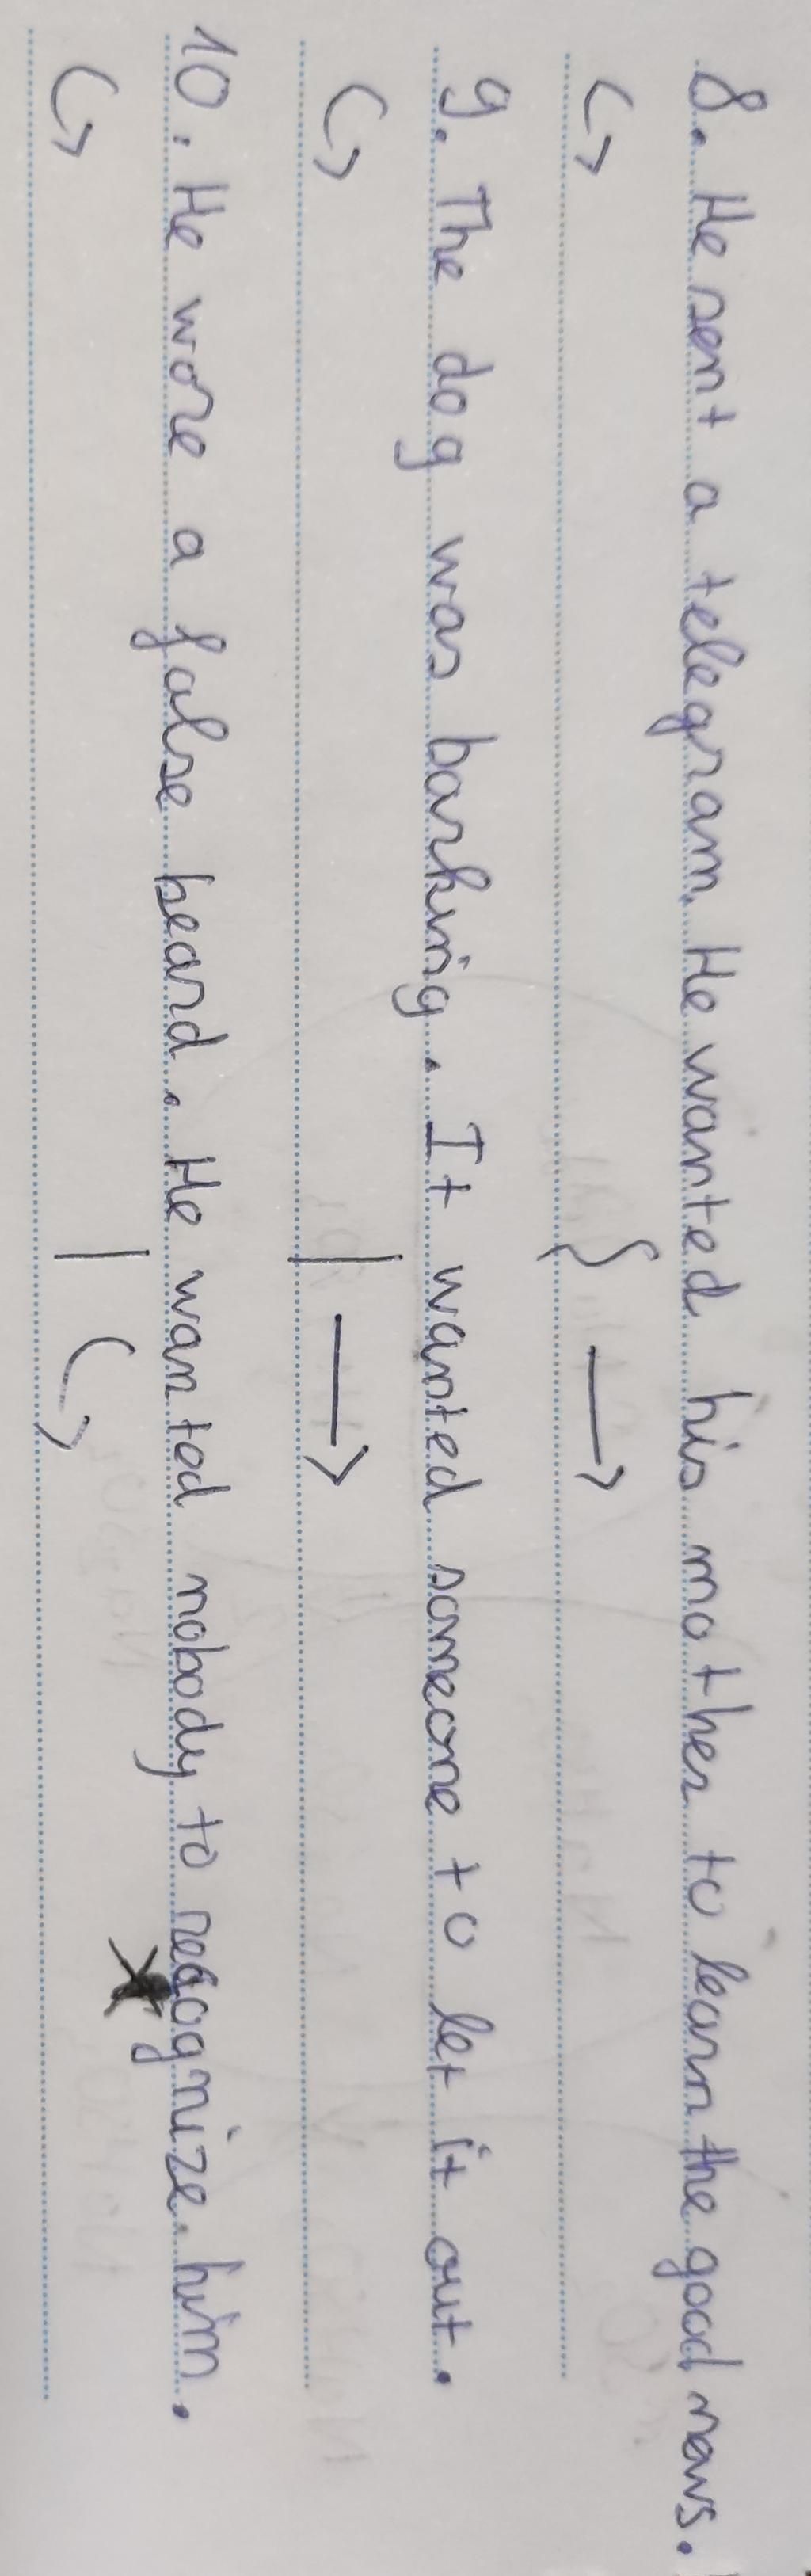 8. He sent a telegram. He wanted his mother to learn the good news.
9. The dog was barking. It wanted someone to let it out.
10. He wore a false beard. He wanted nobody to recognize him.